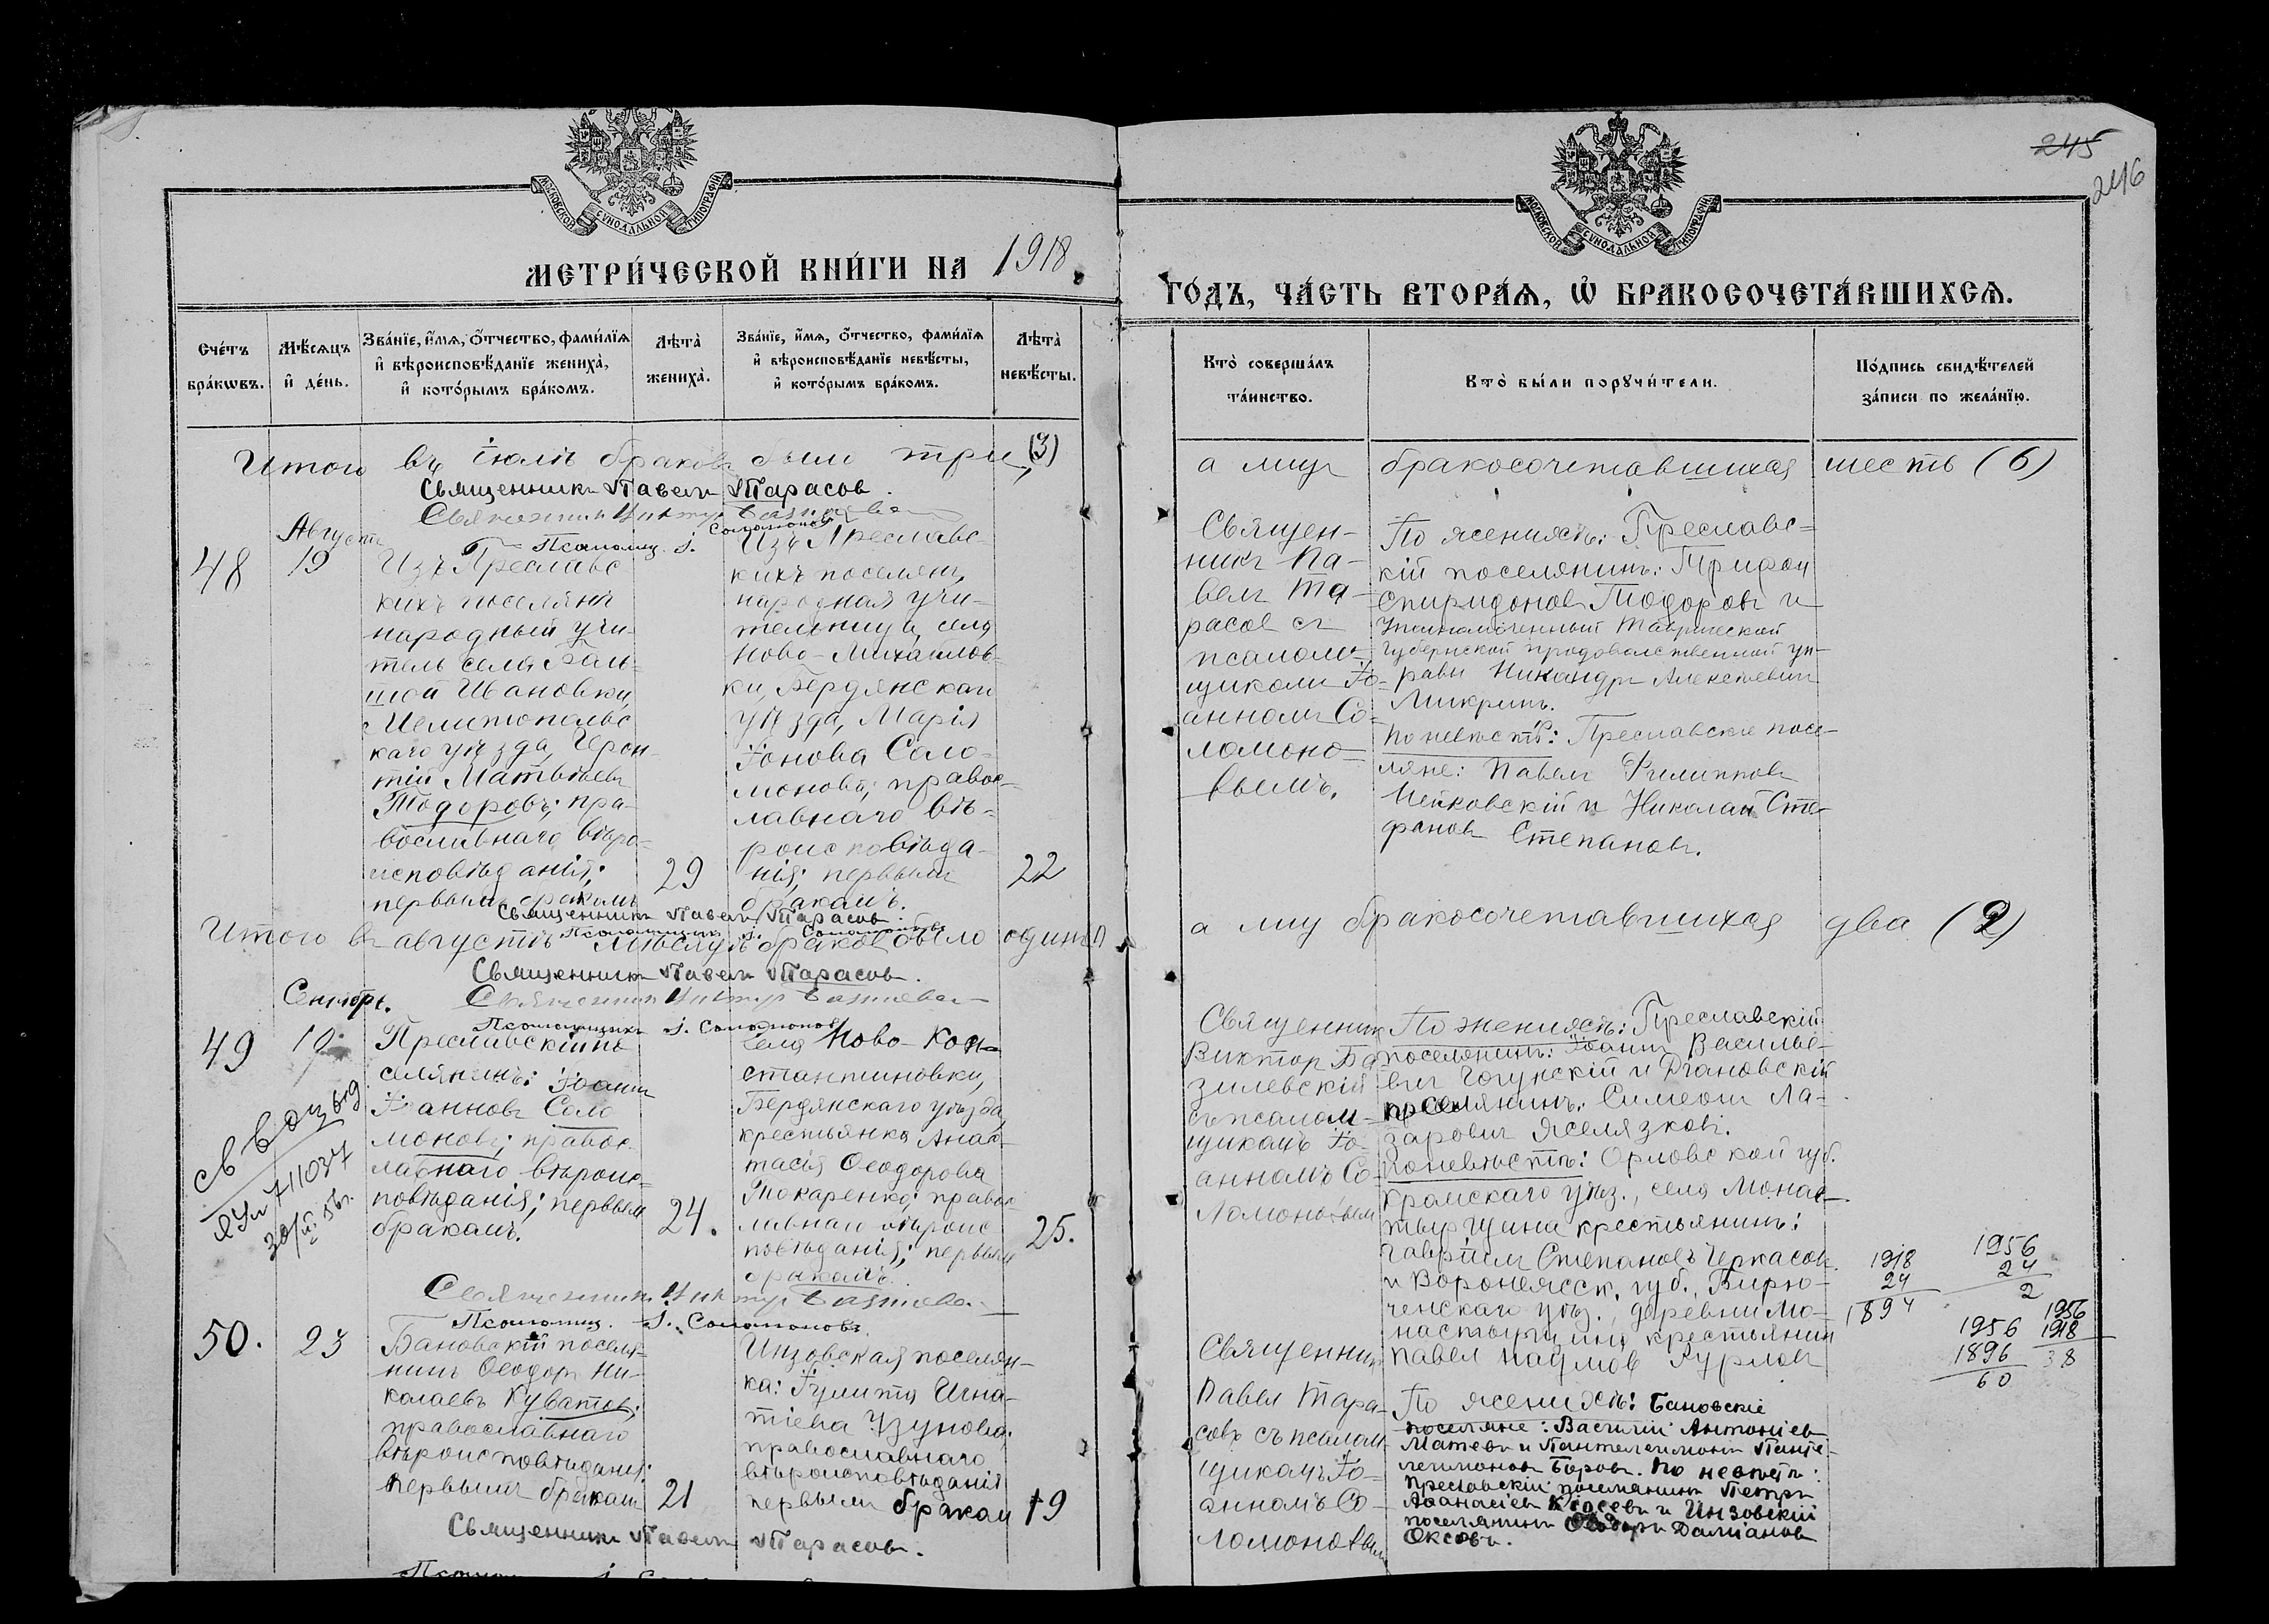 245
246
МОСКОВСКОЙ СѴНОДАЛЬНОЙ ТИПОГРАФІИ
МОСКОВСКОЙ СѴНОДАЛЬНОЙ ТИПОГРАФІИ
МЕТРИ́ЧЕСКОЙ КНИ́ГИ НА 1918.
ГО́ДЪ, ЧА́СТЬ ВТОРА́Ѧ, Ѡ҆ БРАКОСОЧЕТА́ВШИХСѦ.
Сче́тъ
бра́кѡвъ.
Мѣ́сѧцъ
и҆ де́нь.
Зва́нїе, и҆́мѧ, ѻ҆́тчество, фами́лїѧ
и҆ вѣроисповѣ́данїе жениха̀,
и҆ кото́рымъ бра́комъ.
Лѣ́та̀
жениха̀.
Зва́нїе, и҆́мѧ, ѻ҆́тчество, фами́лїѧ
и҆ вѣроисповѣ́данїе невѣ́сты,
и҆ кото́рымъ бра́комъ.
Лѣ́та̀
невѣ́сты.
Кто̀ соверша́лъ
та́инство.
Кто̀ бы́ли порꙋчи́тели.
По́дпись свидѣ́телей
за́писи по жела́нїю.
Итого въ іюлѣ браковъ было три, (3)
а лицъ бракосочетавшихся шесть (6)
Священникъ Павелъ Тарасовъ.
Священникъ Викторъ
Псаломщ. І. Соломоновъ
Августъ
48
19
Изъ Преславс
кихъ поселянъ
народный учи-
тель села Боль-
шой Ивановки,
Мелитопольс
каго уѣзда, Герон-
тій Матвѣевъ
Тодоровъ; пра-
вославнаго вѣро-
исповѣданія;
первымъ бракомъ
29
Изъ Преславс-
кихъ поселянъ,
народная учи-
тельница села
Ново-Михайлов-
ки, Бердянскаго
уѣзда, Марія
Іонова Соло-
монова; правос-
лавнаго вѣ-
роисповѣда-
нія; первымъ
бракомъ.
22
Священ-
никъ Па-
велъ Та-
расов съ
псаломъ-
щикомъ Іо-
анномъ Со-
ломоно-
вымъ.
По женихѣ: Преславс-
кій поселянинъ: Трифон
Спиридоновъ Тодоровъ и
Уполномоченный Таврической
Губернской продовольственной уп-
равы Никандръ Алексѣевичъ
Микринъ.
По невѣстѣ: Преславскіе посе-
ляне: Павелъ Филипповъ
Пейковскій и Николай Сте-
фановъ Степановъ.
Священникъ Павелъ Тарасовъ.
Псаломщикъ І. Соломоновъ
Итого въ августѣ мѣсяцѣ браковъ было одинъ
а лиц бракосочетавшихся два (2)
Священникъ Павелъ Тарасовъ.
Священникъ Викторъ
Псаломщикъ І. Соломоновъ
Сентябрь.
49
10
Преславскій по
селянинъ: Іоаннъ
Іоанновъ Соло
моновъ; правос-
лавнаго вѣроис-
повѣданія; первымъ
бракомъ.
24.
села Ново-Кон-
стантиновки,
Бердянскаго уѣзда,
крестьянка Анас-
тасія Ѳеодорова
Токаренко; правос-
лавнаго вѣроис
повѣданія; первымъ
бракомъ.
25.
Священник
Виктор Ба
зилевскій
съ псалом-
щикомъ Іо-
анномъ Со-
ломоновым
По женихѣ: Преславскій
поселянинъ: Іоаннъ Василье-
вич Чогунскій и Діановскій
поселянинъ: Симеонъ Ла-
заровичъ Желязковъ.
По невѣстѣ: Орловской губ.
Кромскаго уѣз., села Монас-
тырщина крестьянинъ:
Гавріил Степановъ Черкасовъ
и Воронежск. губ., Бирю-
ченскаго уѣз., деревни Мо-
настырщина крестьянин
Павел Наумов Курлов
711037
1918
24
1894
1956
24
2
1956
1896
60
1956
1918
38
Священникъ Викторъ
Псаломщ. І. Соломоновъ
50.
23
Бановскій поселя-
нинъ Ѳеодоръ Ни-
колаевъ Куватов;
православнаго
вѣроисповѣданія:
первымъ браком
21
Инзовская поселян-
ка: Іулита Игна-
тіева Узунова;
православнаго
вѣроисповѣданія
первымъ браком
19
Священник
Павел Тара-
совъ съ псалом-
щикомъ Іо-
анномъ Со-
ломоновым
По женихѣ: Бановскіе
поселяне: Василій Антоніев
Матевъ и Пантелеимонъ Панте-
леимоновъ Боровъ. По невѣстѣ:
Преславскій поселянинъ Петръ
Аѳанасіевъ Кіосевъ и Инзовскій
поселянинъ Ѳеодоръ Даміанов
Оксовъ.
Священникъ Павелъ Тарасовъ.